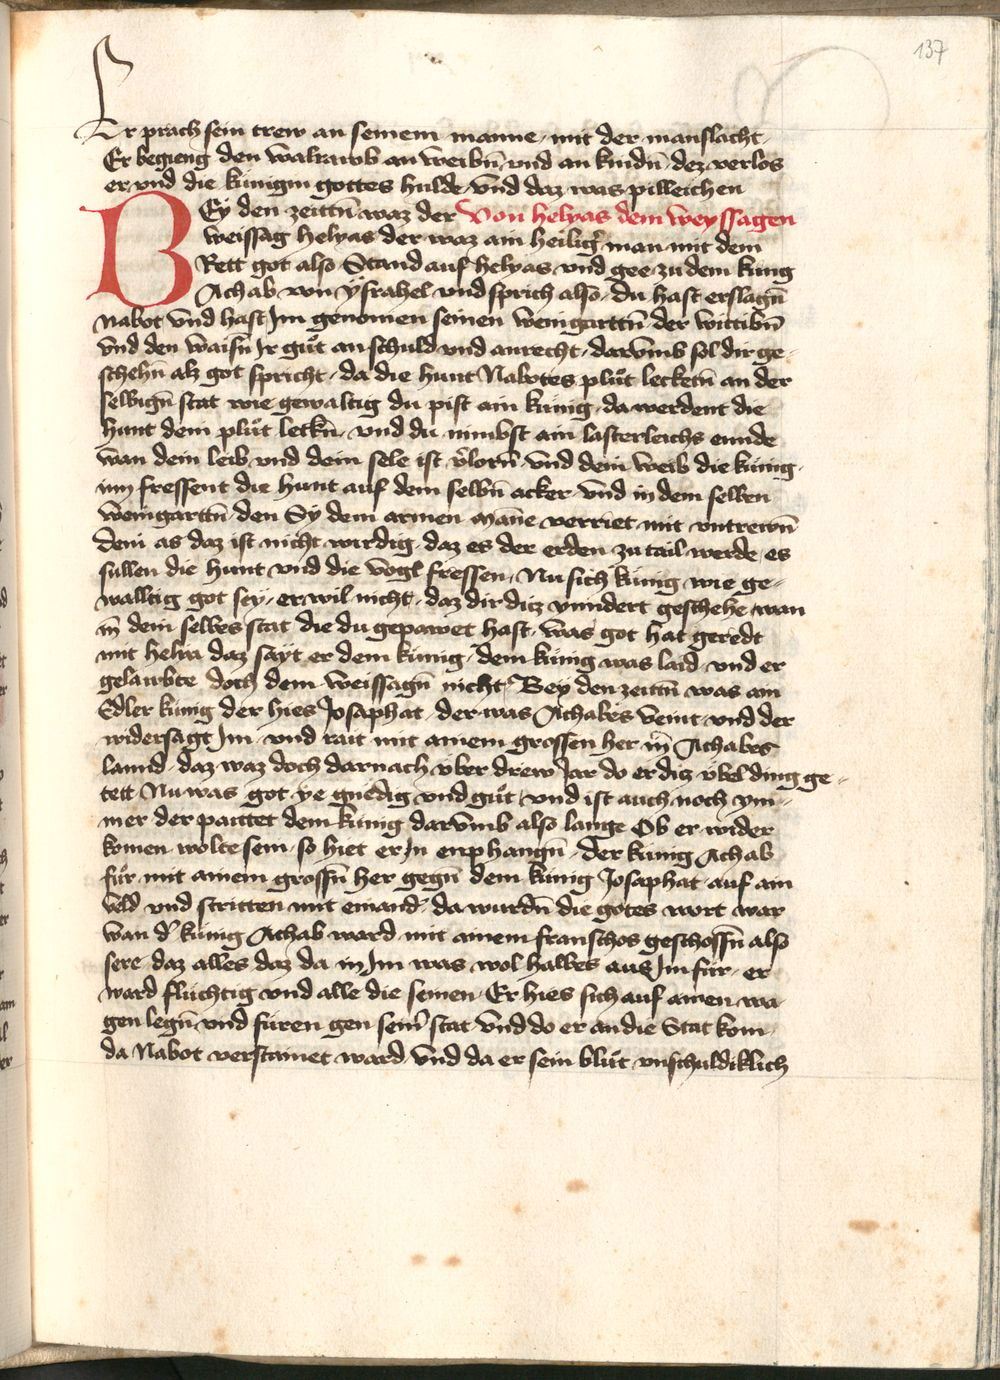 137
Er prach sein trew an seinem manne mit der manslacht
Er begieng den walrawb an weibn̄ vnd an kindn̄ dez verlos
er vnd die künigin gottes hulde vnd daz was pilleichen
BEy den zeittn̄ waz der Von helyas dem weyssagen
weissag helyas der waz ain heilig̾ man mit dem
Rett got also Stand auf helyas vnd gee zu dem kung
Achab von ÿsrahel vnd sprich also du hast erslagn̄
Nabot vnd hast Im genomen seinen weingarttn̄ der wittibn̄
vnd den waisn̄ Ir guͤt an schuld vnd anrecht darvmb sol dir ge-
schehn̄ alz got spricht da die hunt Nabotes pluͤt lecketn̄ an der
selbign̄ stat wie gewaltig du pist ain künig da werdent die
hunt dein pluͤt leckn̄ vnd du nimbst ain lasterleichs ennde
wan dein leib vnd dein sele ist v̾lorn̄ vnd dein weib die künig-
inn fressent die hunt auf dem selbn̄ acker vnd in dem selben
weingarttn̄ den Sy dem armen Man̄e verriet mit vntrewn̄
dein as daz ist nicht wirdig daz es der erden zu tail werde es
sullen die hunt vnd die vogl fressen Nu sich künig wie ge-
walltig got sey er wil nicht daz dir ditz vnndert geschehe wan
in dein selbes stat die du gepawet hast was got hat geredt
mit helia daz sayt er dem künig dem künig was laid vnd er
gelawbte doch dem weissagn̄ nicht Bey den zeittn̄ was ain
Edler künig der hies Josaphat der was Achabes veint vnd der
widersagt Im vnd rait mit ainem grossen her in Achabes
lannd daz waz doch darnach vber drew Jar do er ditz vbel ding ge-
tett Nu was got ye gnedig vnd guͤt vnd ist auch noch ym-
mer der paittet dem künig darvmb also lange Ob er wider
komen wolte sein so hiet er In enphangn̄ der künig Achab
fuͤr mit ainem grossn̄ her gegn̄ dem künig Josaphat auf ain
veld vnd stritten mit einand̾ da wurdn̄ die gotes wort war
wan d̾ künig Achab ward mit ainem franschos geschossn̄ also
sere daz alles daz da in Im was wol halbes aus Im fuͤr er
ward fluchtig vnd alle die seinen Er hies sich auf ainen wa-
gen legn̄ vnd furen gen sein̄ stat vnd do er an die Stat kom
da Nabot verstainet ward vnd da er sein bluͤt vnschuldiklich